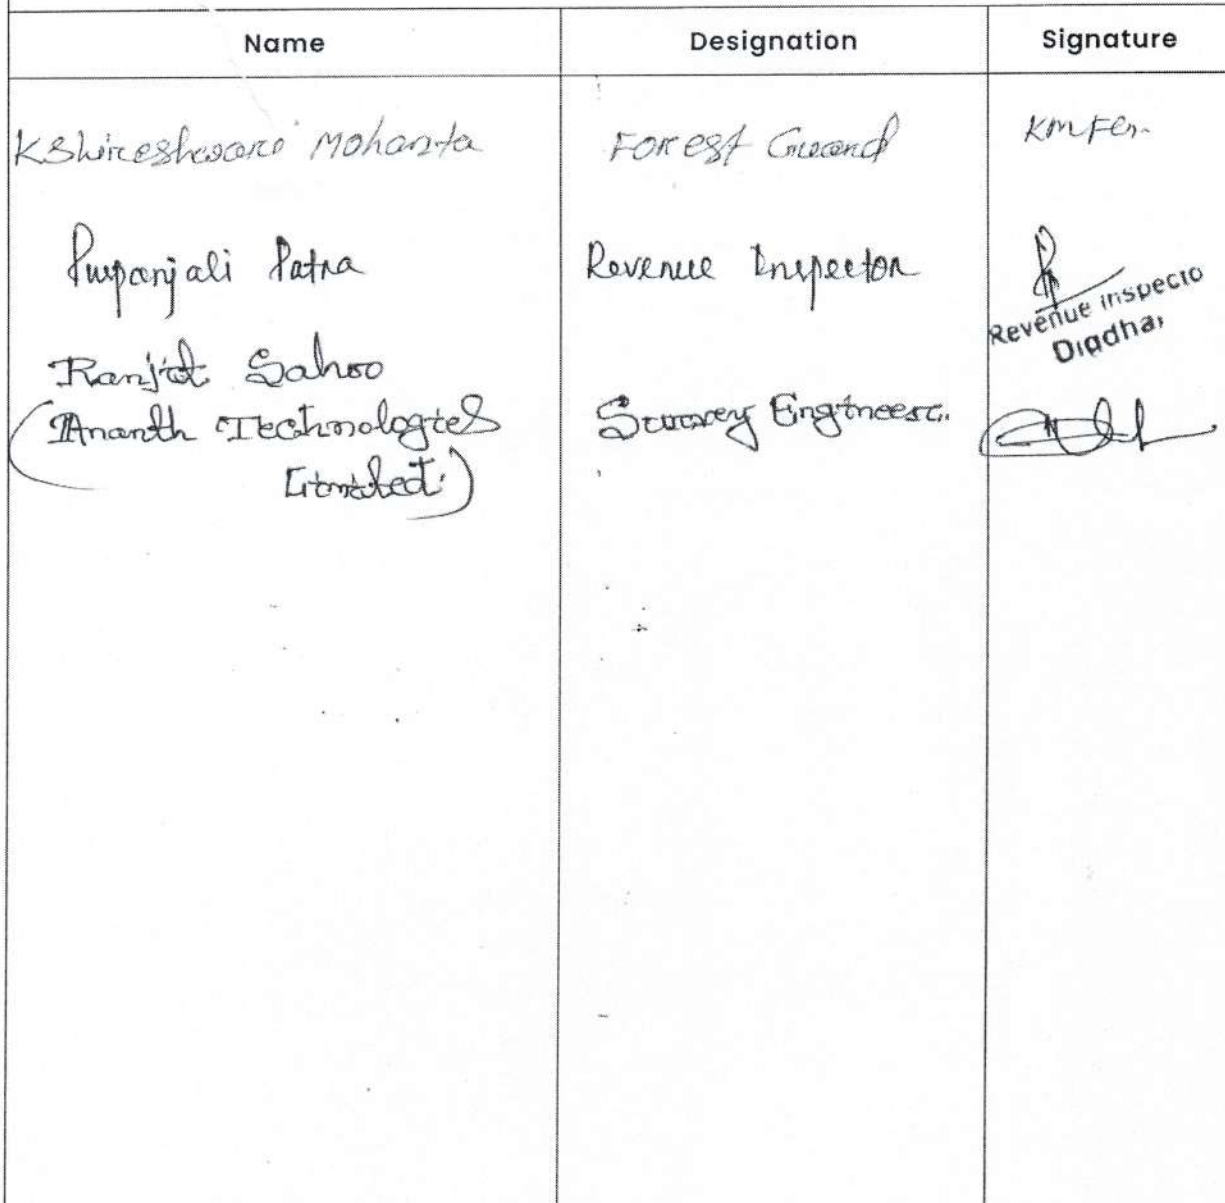 Name Designation Signature
Kshireshwar Mohanta Forest Guard
Puspanjali Patra Revenue Inspector
Revenue Inspecto
Ranjit Sahoo
(Ananth Technologies Survey Engineer.
Limited)